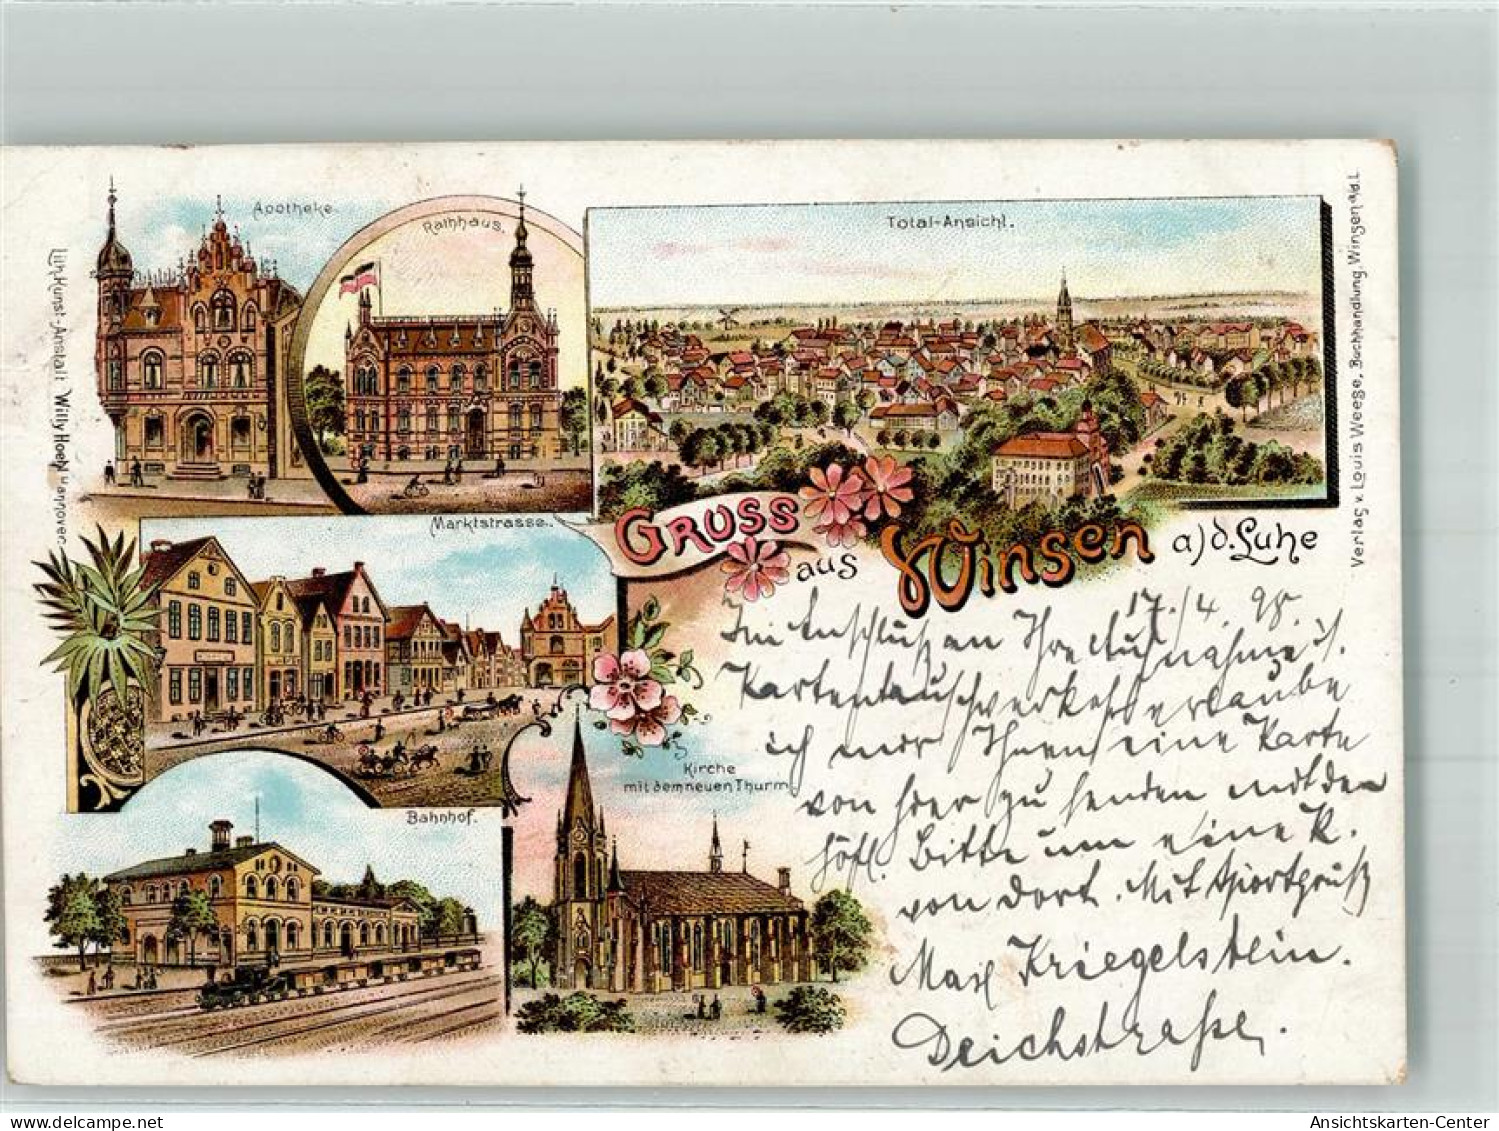 Apotheke.
Rathhaus.
Total-Ansicht.
Marktstrasse.
Gruss
aus
Winsen a/d. Luhe
Kirche
mit dem neuen Thurm.
Bahnhof.
Lith. Kunst-Anstalt Willy Hoehl Hannover.
Verlag v. Louis Weege, Buchhandlung, Winsen a/d. L.
17./4. 98.
Im Anschluß an Ihre Aufnahme i/.
Kartentauschverkehr erlaube
ich mir Ihnen eine Karte
von hier zu senden mit der
höfl. Bitte um eine K.
von dort. Mit Sportgruß
Max Kriegelstein.
Deichstraße.
delcampe.net
Ansichtskarten-Center